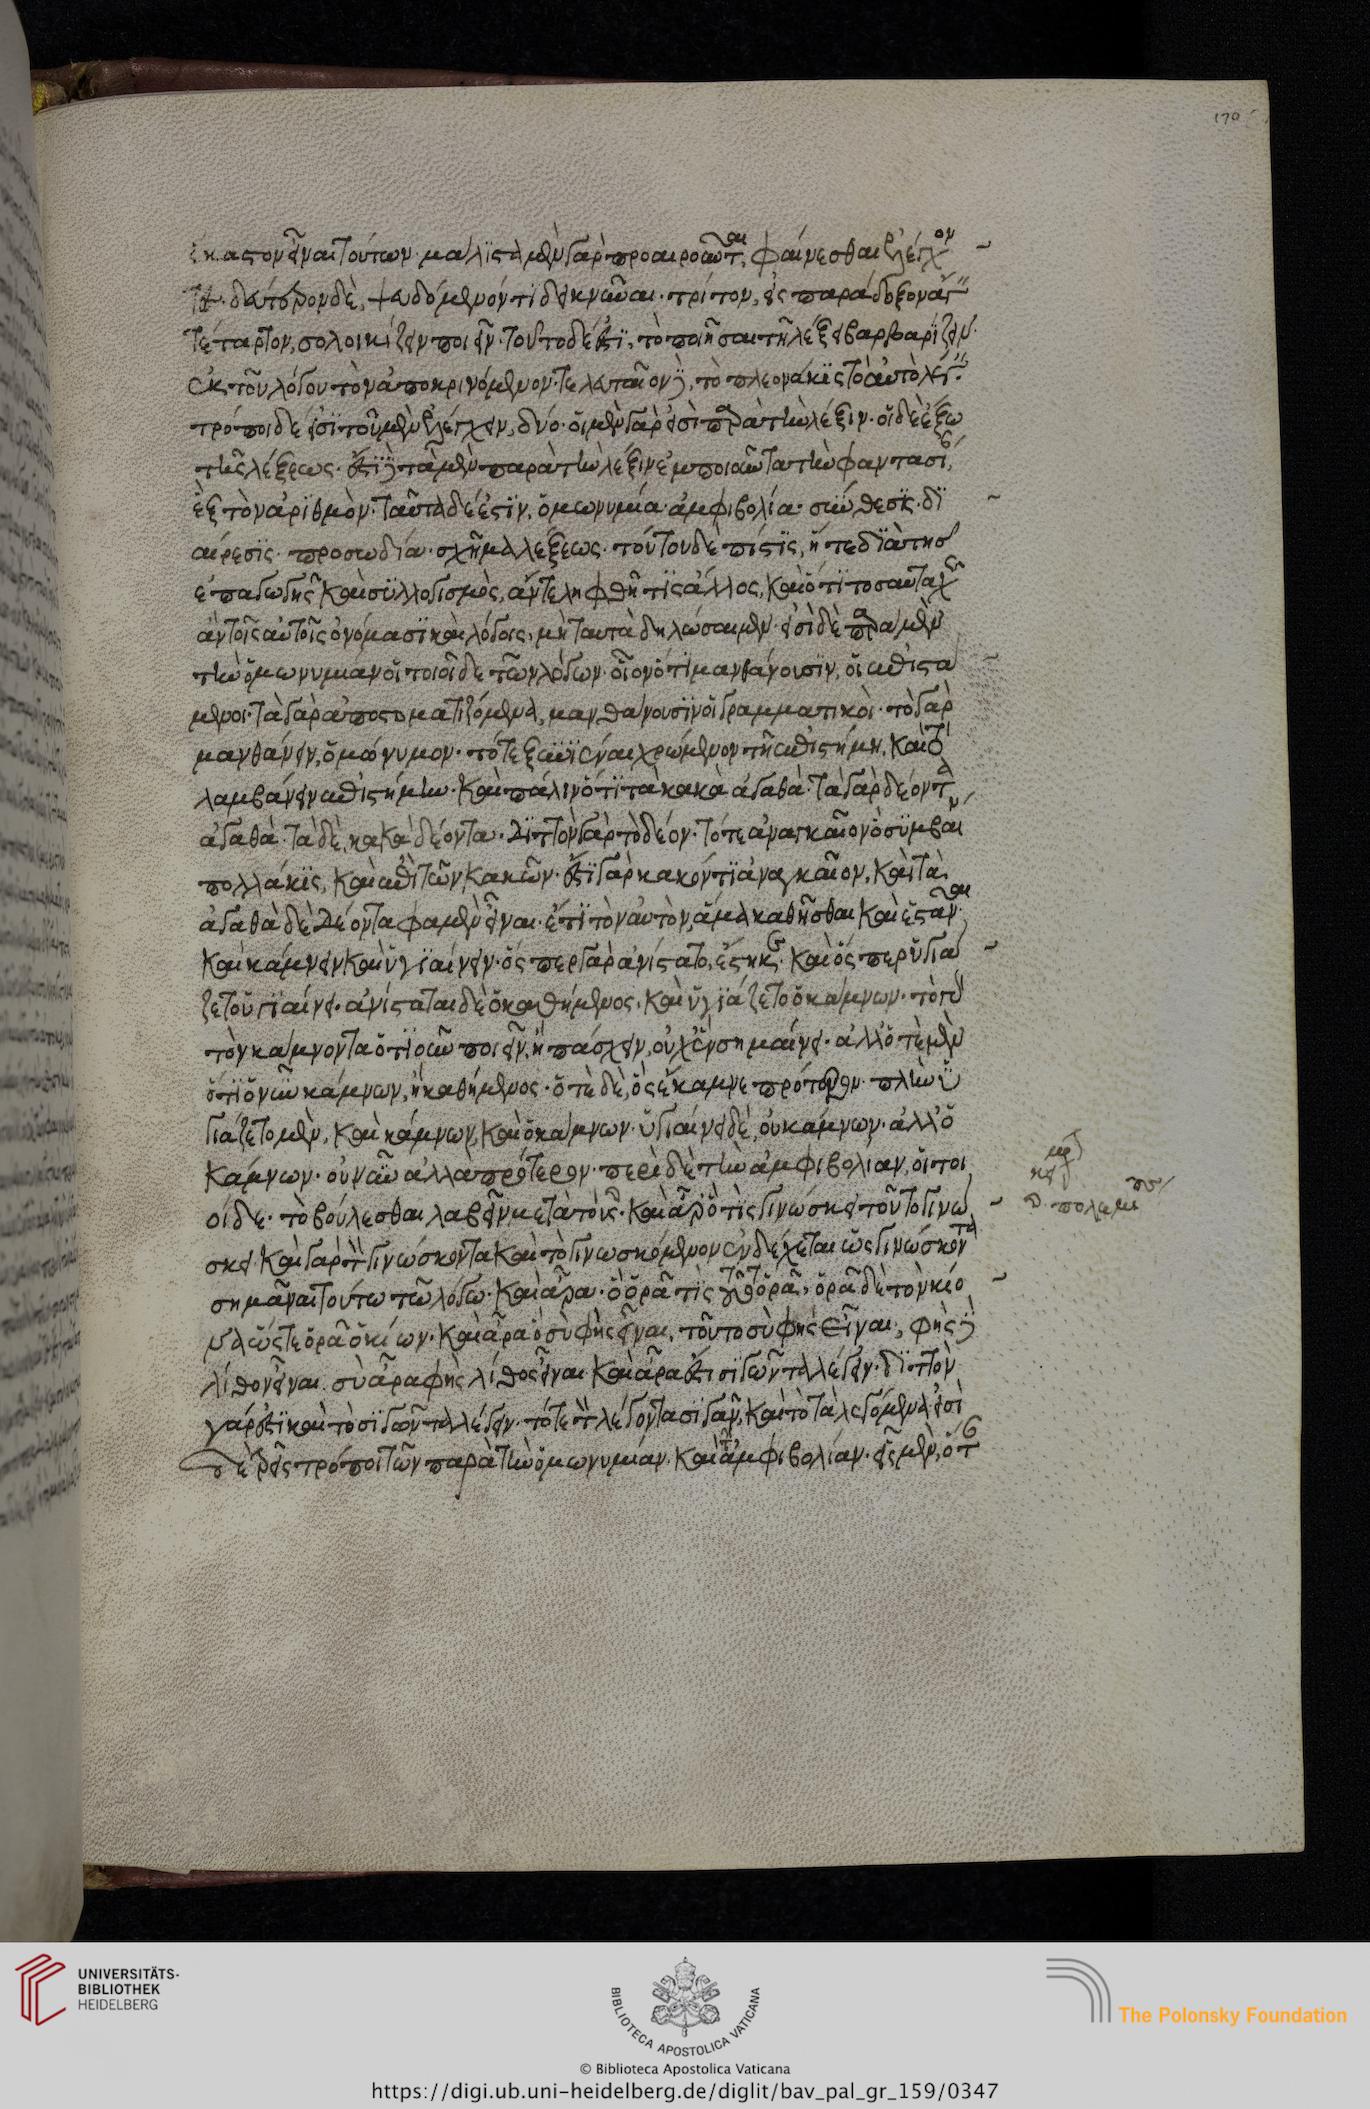 170
ἕκαστον εἶναι τούτων· μάλιστα μὲν γὰρ προαιροῦνται φαίνεσθαι ἐλέγχον
τες· δεύτερον δὲ, ψευδόμενόν τι δεικνύναι· τρίτον, εἰς παράδοξον ἄγειν
τέταρτον, σολοικίζειν ποιεῖν· τοῦτο δέ ἐστι, τὸ ποιῆσαι τῇ λέξει βαρβαρίζειν·
ἐκ τοῦ λόγου τὸν ἀποκρινόμενον· τελευταῖον δὲ, τὸ πλεονάκις τὸ αὐτὸ λέγειν·
τρόποι δέ εἰσι τοῦ μὲν ἐλέγχειν, δύο· οἱ μὲν γάρ εἰσι παρὰ τὴν λέξιν· οἱ δὲ ἔξω
τῆς λέξεως· ἔστι δὲ τὰ μὲν παρὰ τὴν λέξιν ἐμποιοῦντα τὴν φαντασίαν,
ἓξ τὸν ἀριθμὸν· ταῦτα δέ ἐστιν, ὁμωνυμία· ἀμφιβολία· σύνθεσις· δι
αίρεσις· προσωδία· σχῆμα λέξεως· τούτου δὲ πίστις, ἥ τε διὰ τῆς
ἐπαγωγῆς καὶ συλλογισμὸς, ἄν τε ληφθῇ τις ἄλλος, καὶ ὅτι τοσαυταχῶς
ἂν τοῖς αὐτοῖς ὀνόμασι καὶ λόγοις, μὴ ταυτὰ δηλώσαιμεν· εἰσὶ δὲ παρὰ μὲν
τὴν ὁμωνυμίαν οἱ τοιοίδε τῶν λόγων· οἷον ὅτι μανθάνουσιν, οἱ ἐπιστά
μενοι· τὰ γὰρ ἀποστοματιζόμενα, μανθάνουσιν οἱ γραμματικοὶ· τὸ γὰρ
μανθάνειν, ὁμώνυμον· τό τε ξυνιέναι χρώμενον τῇ ἐπιστήμῃ, καὶ τὸ
λαμβάνειν ἐπιστήμην· καὶ πάλιν ὅτι τὰ κακὰ ἀγαθὰ· τὰ γὰρ δέοντα
ἀγαθὰ· τὰ δὲ, κακὰ δέοντα· διττὸν γὰρ τὸ δέον· τό τε ἀναγκαῖον ὃ συμβαίνει
πολλάκις, καὶ ἐπὶ τῶν κακῶν· ἔστι γὰρ κακόν τι ἀναγκαῖον, καὶ τὰ
ἀγαθὰ δὲ δέοντα φαμὲν εἶναι· ἔτι τὸν αὐτὸν, ἅμα καθῆσθαι καὶ ἑστάναι
καὶ κάμνειν καὶ ὑγιαίνειν· ὅσπερ γὰρ ἀνίστατο, ἕστηκεν· καὶ ὅσπερ ὑγιά
ζετο ὑγιαίνει· ἀνίσταται δὲ ὁ καθήμενος, καὶ ὑγιάζετο ὁ κάμνων· τὸ γὰρ
τὸν κάμνοντα ὁτιοῦν ποιεῖν, ἢ πάσχειν, οὐχ ἓν σημαίνει· ἀλλ' ὁτὲ μὲν
ὅτι ὁ νῦν κάμνων, ἢ καθήμενος· ὁτὲ δὲ, ὃς ἔκαμνε πρότερον· πλὴν ὑ
γιάζετο μὲν, καὶ κάμνων, καὶ ὁ κάμνων· ὑγιαίνει δὲ, οὐ κάμνων· ἀλλ' ὁ
κάμνων· οὐ νῦν ἀλλὰ πρότερον· περὶ δὲ τὴν ἀμφιβολίαν, οἱ τοι
οίδε· τὸ βούλεσθαι λαβεῖν με τὰ τοὺς· καὶ ἆρ' ὅ τις γινώσκει τοῦτο γινώ
σκει· καὶ γὰρ τὸν γινώσκοντα καὶ τὸ γινωσκόμενον ἐνδέχεται ὡς γινώσκοντα
σημᾶναι τούτω τῶ λόγω· καὶ ἆρα· ὃ ὁρᾷ τὶς τοῦτο ὁρᾷ· ὁρᾷ δὲ τὸν κίο
να ὥστε ὁρᾷ ὁ κίων· καὶ ἆρα ὃ σὺ φῂς εἶναι, τοῦτο σὺ φῂς εἶναι, φῂς δὲ
λίθον εἶναι· σὺ ἆρα φῂς λίθος εἶναι· καὶ ἆρα ἔστι σιγῶντα λέγειν· διττὸν
γάρ ἐστι καὶ τὸ σιγῶντα λέγειν· τό τε τὸν λέγοντα σιγᾶν, καὶ τὸ τὰ λεγόμενα· εἰσὶ
δὲ τρεῖς τρόποι τῶν παρὰ τὴν ὁμωνυμίαν· καὶ τὴν ἀμφιβολίαν· εἷς μὲν, ὅταν
UNIVERSITÄTS-
BIBLIOTHEK
HEIDELBERG
BIBLIOTECA APOSTOLICA VATICANA
The Polonsky Foundation
© Biblioteca Apostolica Vaticana
https://digi.ub.uni-heidelberg.de/diglit/bav_pal_gr_159/0347